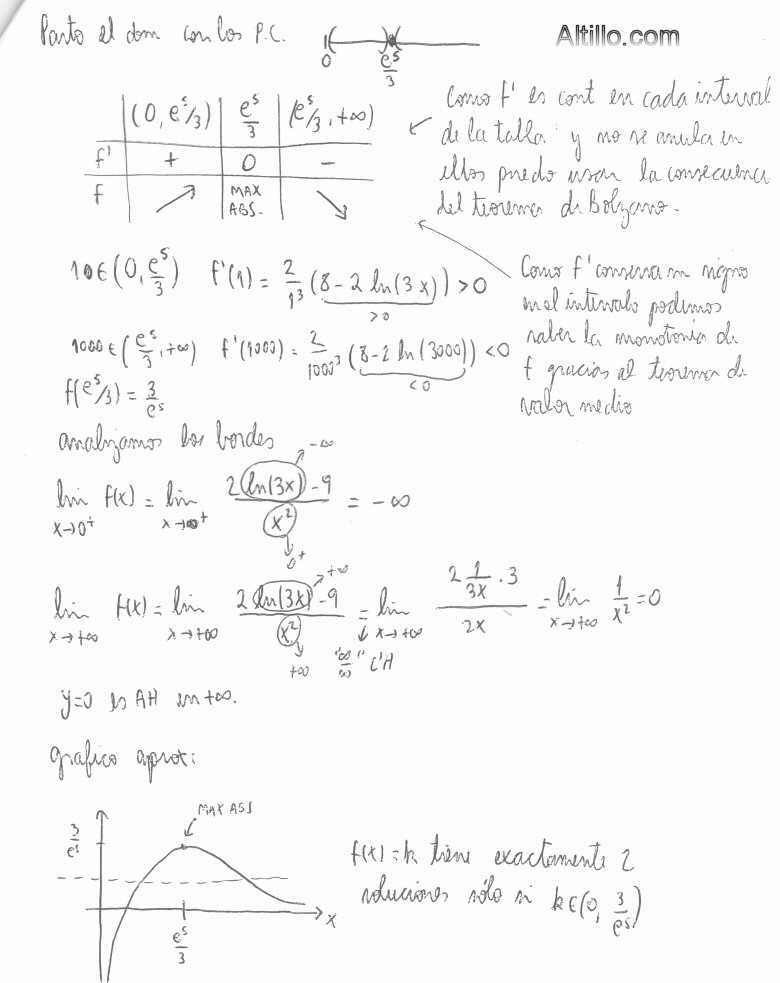 Parto el dom con los P.C.
Altillo.com
0 e^5/3
(0, e^5/3) e^5/3 (e^5/3, +∞)
f' + 0 -
f ↗ MAX ABS. ↘
Como f' es cont en cada intervalo
de la tabla y no se anula en
ellos puedo usar la consecuencia
del teorema de Bolzano.
Como f' conserva su signo
en el intervalo podemos
saber la monotonia de
f gracias al teorema de
valor medio
1 ∈ (0, e^5/3) f'(1) = 2/1^3 (8 - 2 ln(3x)) > 0
> 0
1000 ∈ (e^5/3, +∞) f'(1000) = 2/1000^3 (8 - 2 ln(3000)) < 0
< 0
f(e^5/3) = 3/e^5
analizamos los bordes
lim x→0+ f(x) = lim x→0+ (2 ln(3x) - 9)/x^2 = -∞
-∞
0+
lim x→+∞ f(x) = lim x→+∞ (2 ln(3x) - 9)/x^2 = lim x→+∞ (2 1/3x · 3)/2x = lim x→+∞ 1/x^2 = 0
+∞
+∞ "∞/∞" L'H
y=0 es AH en +∞.
grafico aprox:
MAX ABS
3/e^5
e^5/3
x
f(x) = k tiene exactamente 2
soluciones sólo si k ∈ (0, 3/e^5)